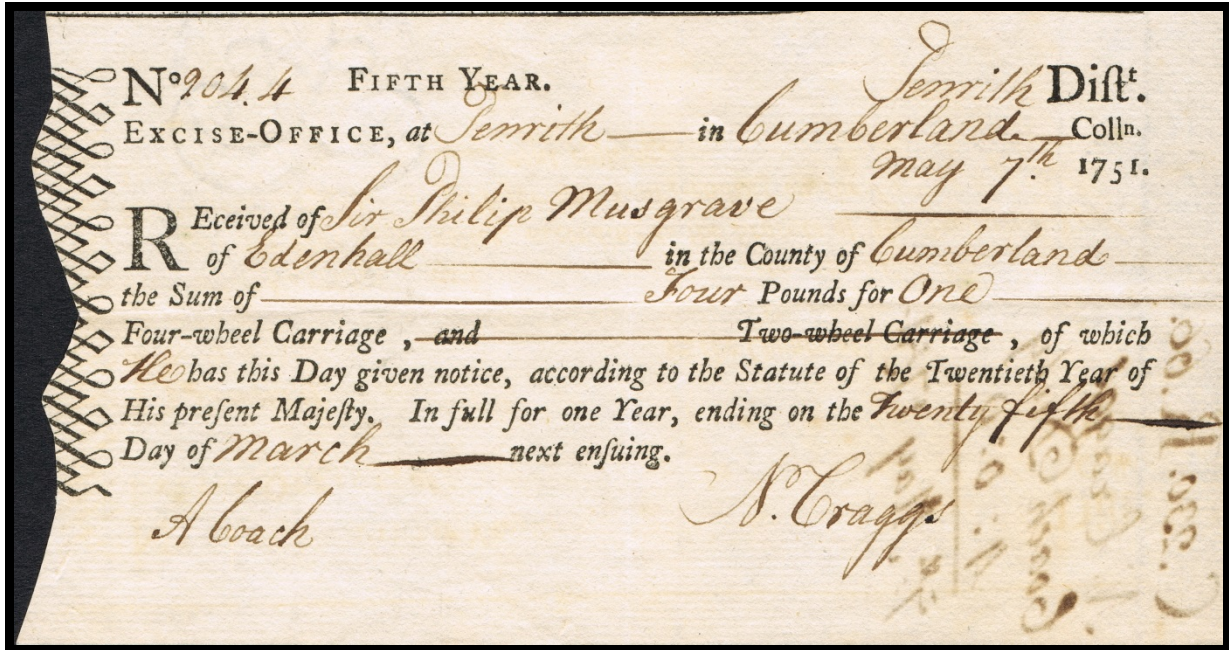 Nº 2044 FIFTH YEAR. Penrith Diſt.ᵗ
EXCISE-OFFICE, at Penrith in Cumberland Collⁿ.
May 7.ᵗʰ 1751.
REceived of Sir Philip Musgrave
of Edenhall in the County of Cumberland
the Sum of Four Pounds for One
Four-wheel Carriage, and Two-wheel Carriage, of which
He has this Day given notice, according to the Statute of the Twentieth Year of
His preſent Majeſty. In full for one Year, ending on the Twenty fifth
Day of March next enſuing.
A Coach N. Craggs